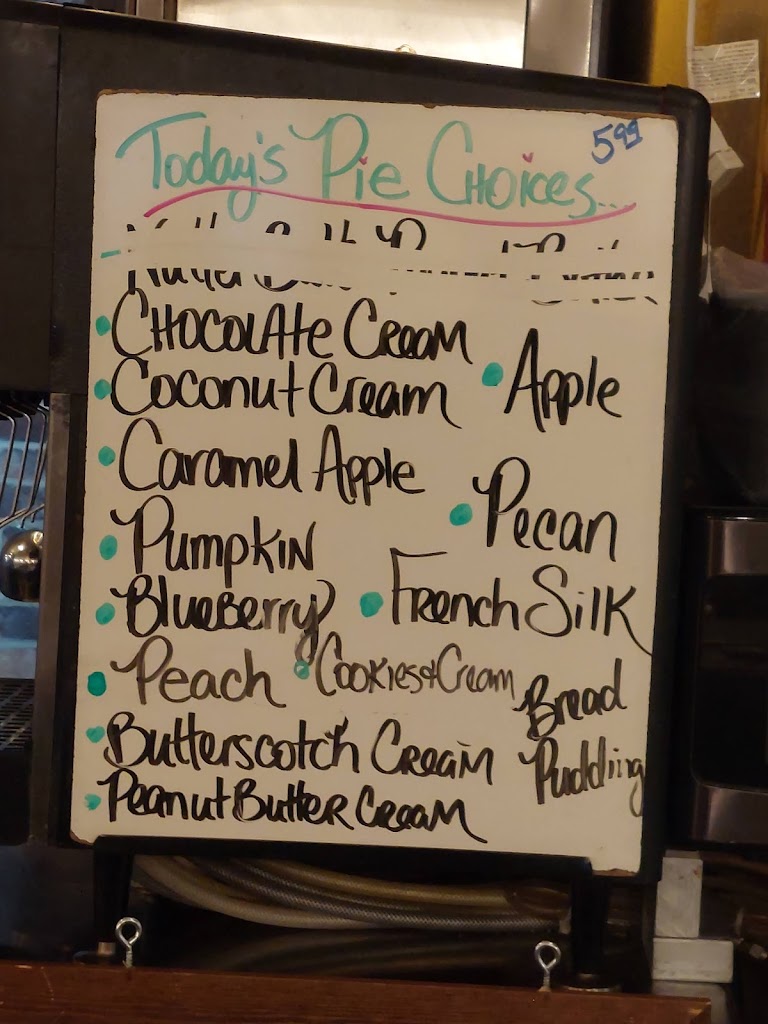 Today's Pie Choices...
5⁹⁹
Chocolate Cream
Apple
Coconut Cream
Caramel Apple
Pecan
Pumpkin
Blueberry
French Silk
Peach
Cookies & Cream
Bread
Pudding
Butterscotch Cream
Peanut Butter Cream